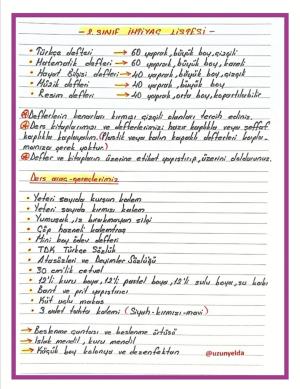 - 2. SINIF İHTİYAÇ LİSTESİ -
• Türkçe defteri → 60 yaprak, büyük boy, çizgili
• Matematik defteri → 60 yaprak, büyük boy, kareli
• Hayat Bilgisi defteri → 40 yaprak, büyük boy, çizgili
• Müzik defteri → 40 yaprak, büyük boy
• Resim defteri → 40 yaprak, orta boy, kopartılabilir.
@Defterlerin kenarları kırmızı çizgili olanları tercih ediniz.
@Ders kitaplarımızı ve defterlerimizi hazır kaplıkla veya şeffaf
kaplıkla kaplayalım. (Plastik veya kalın kapaklı defterleri kapla-
manıza gerek yoktur.)
@Defter ve kitapların üzerine etiket yapıştırıp, üzerini doldurunuz.
Ders araç-gereçlerimiz
• Yeteri sayıda kurşun kalem
• Yeteri sayıda kırmızı kalem
• Yumuşak, iz bırakmayan silgi
• Çöp hazneli kalemtraş
• Mini boy ödev defteri
• TDK Türkçe Sözlük
• Atasözleri ve Deyimler Sözlüğü
• 30 cm'lik cetvel
• 12'li kuru boya, 12'li pastel boya, 12'li sulu boya, su kabı
• Bant ve prit yapıştırıcı
• Küt uçlu makas
• 3 adet tahta kalemi (Siyah-kırmızı-mavi)
→ Beslenme çantası ve beslenme örtüsü
→ Islak mendil, kuru mendil
→ Küçük boy kolonya ve dezenfektan
@uzunyelda